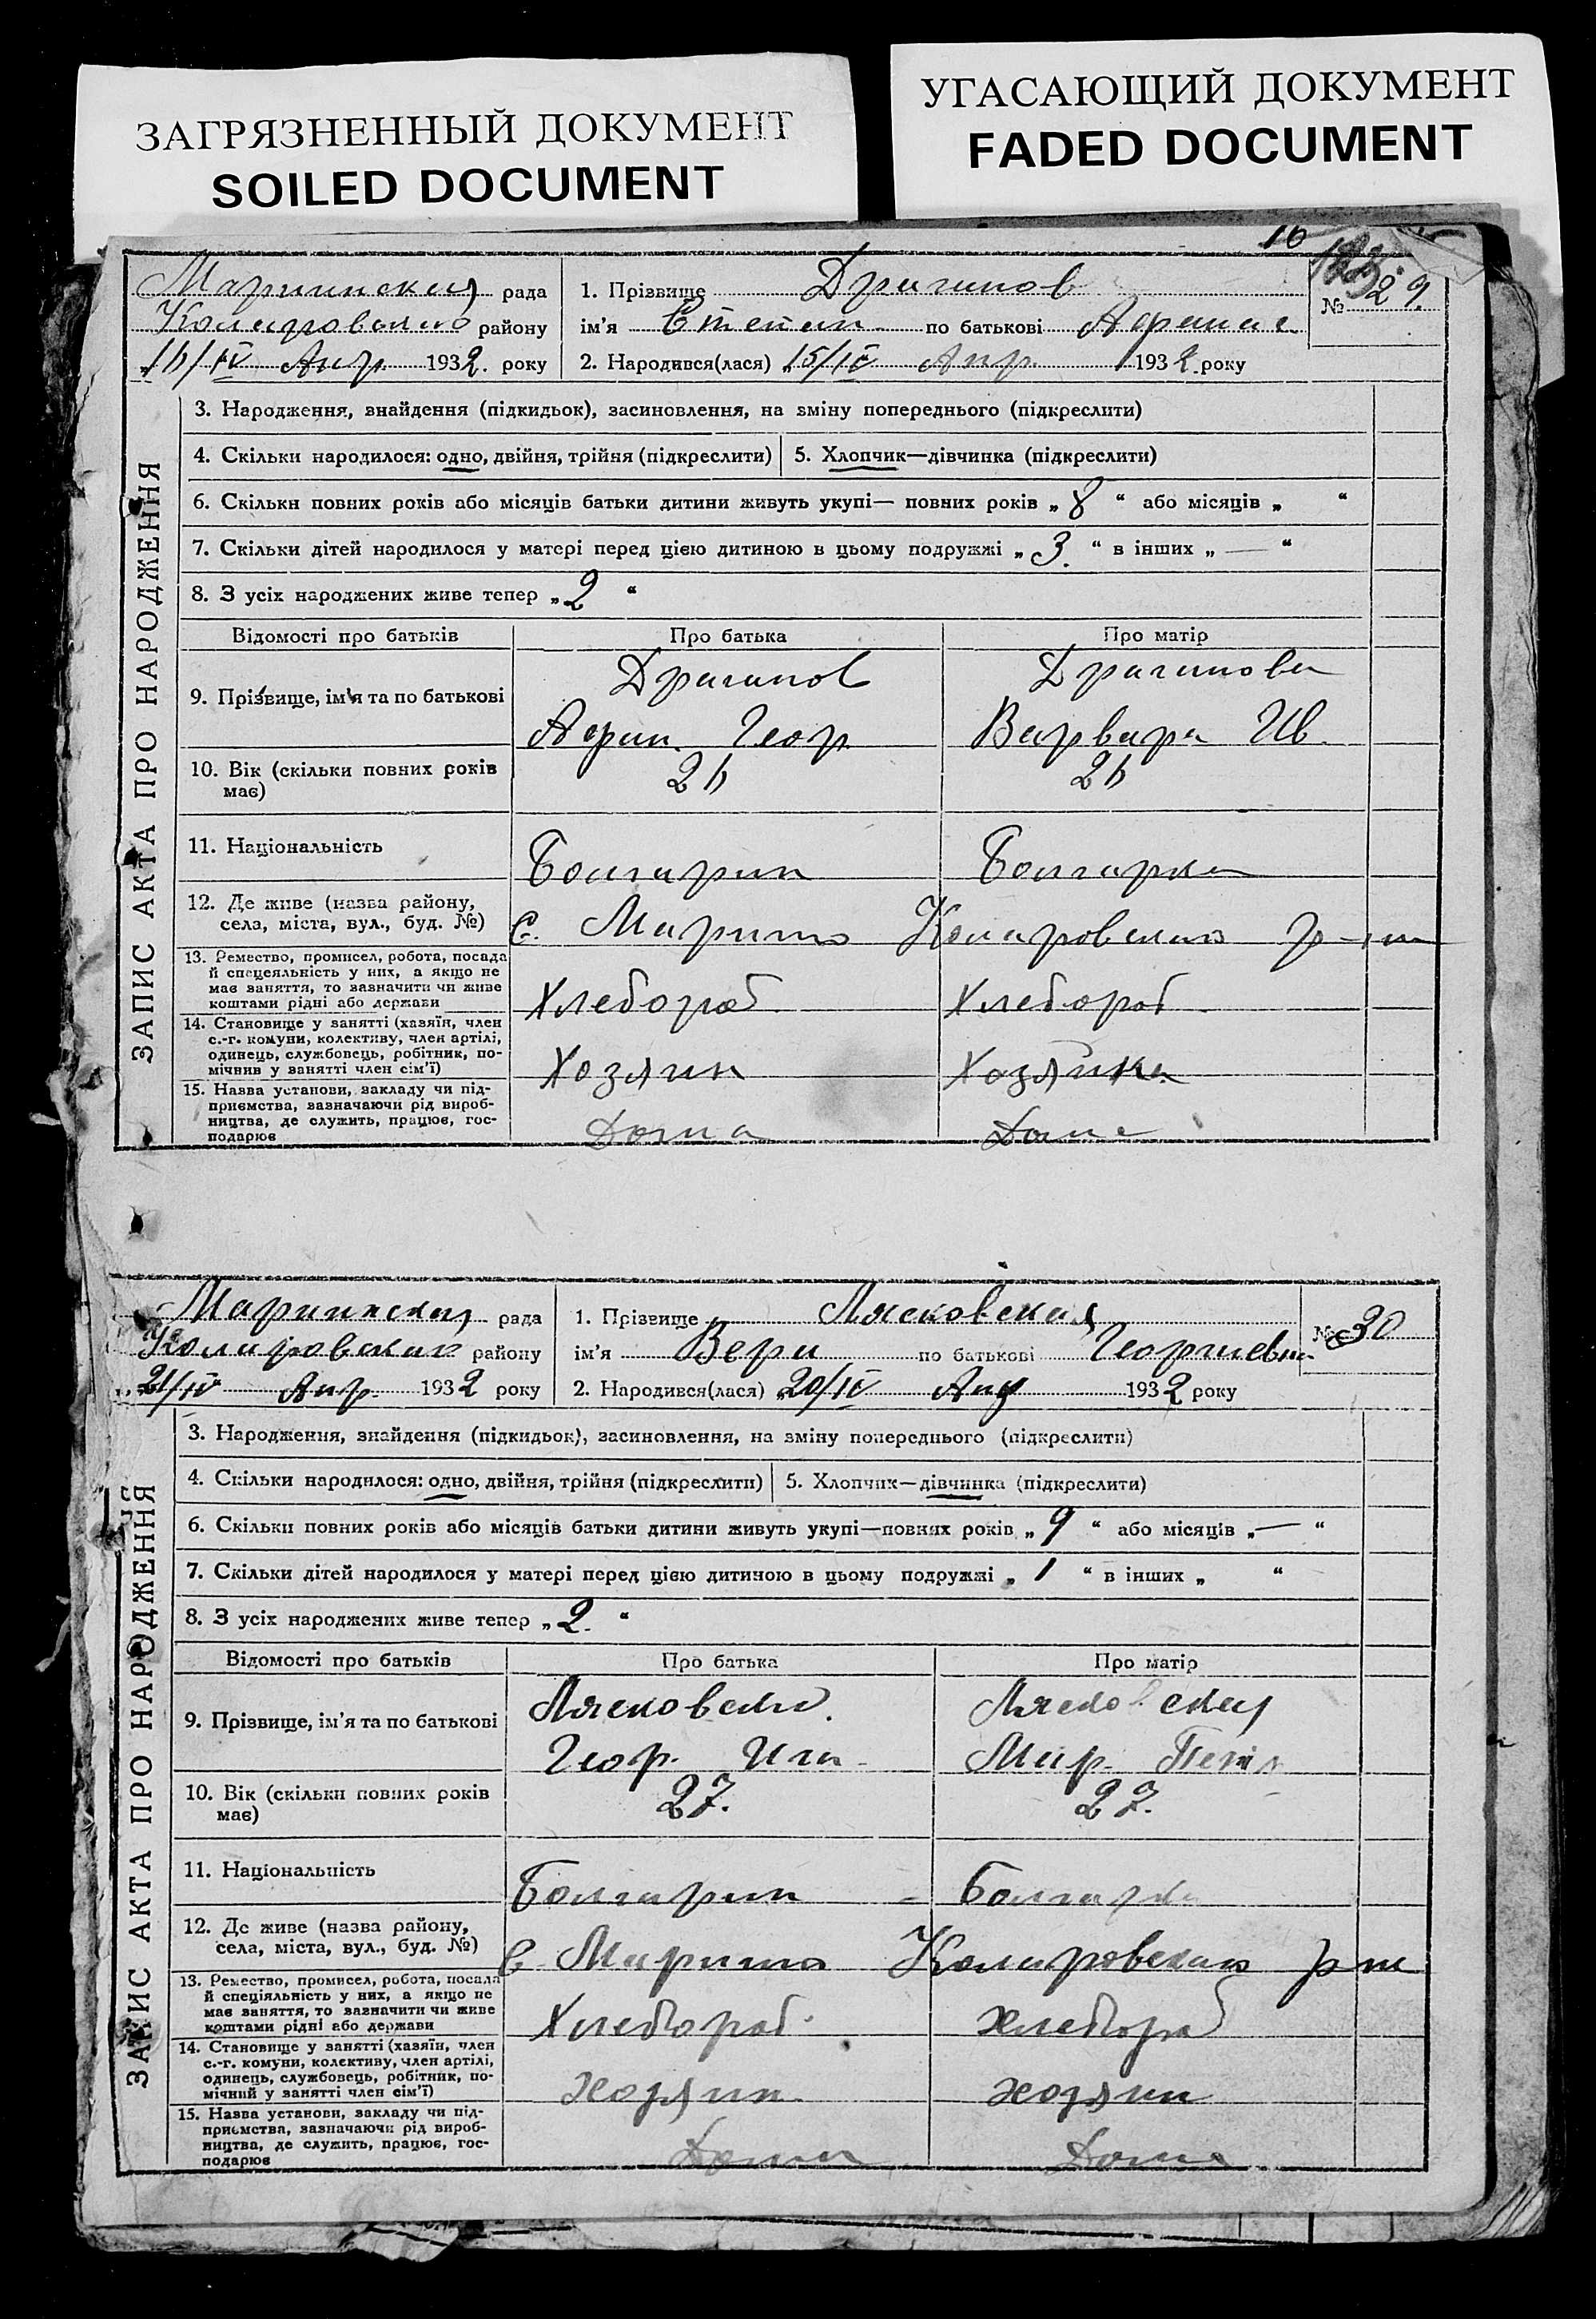 ЗАГРЯЗНЕННЫЙ ДОКУМЕНТ
SOILED DOCUMENT
УГАСАЮЩИЙ ДОКУМЕНТ
FADED DOCUMENT
16
Мариинская рада
Коларовского району
16/IV Апр. 1932. року
1. Прізвище Драгинов
ім'я Степан по батькові
2. Народився(лася) 15/IV Апр. 1932. року
№ 29.
ЗАПИС АКТА ПРО НАРОДЖЕННЯ
3. Народження, знайдення (підкидьок), засиновлення, на зміну попереднього (підкреслити)
4. Скільки народилося: одно, двійня, трійня (підкреслити) 5. Хлопчик—дівчинка (підкреслити)
6. Скільки повних років або місяців батьки дитини живуть укупі— повних років „ 8 “ або місяців „ “
7. Скільки дітей народилося у матері перед цією дитиною в цьому подружжі „ 3. “ в інших „ — “
8. З усіх народжених живе тепер „ 2 “
Відомості про батьків Про батька Про матір
9. Прізвище, ім'я та по батькові
Драгинов Драгинова
Геор. Варвара Ив.
10. Вік (скільки повних років
має)
26 26
11. Національність
Болгарин Болгарка
12. Де живе (назва району,
села, міста, вул., буд. №)
с. Марино Коларовского р-на
13. Ремество, промисел, робота, посада
й спецеяльність у них, а якщо не
має заняття, то зазначити чи живе
коштами рідні або держави
Хлебороб Хлебороб
14. Становище у занятті (хазяїн, член
с.-г. комуни, колективу, член артілі,
одинець, службовець, робітник, по-
мічнив у занятті член сім'ї)
Хозяин Хозяйка
15. Назва установи, закладу чи під-
приємства, зазначаючи рід вироб-
ництва, де служить, працює, гос-
подарює
Дома Дома
Мариинская рада
Коларовского району
21/IV Апр. 1932 року
1. Прізвище Лясковская
ім'я Вера по батькові Георгиевна
2. Народився(лася) 20/IV Апр 1932 року
№ 30
ЗАПИС АКТА ПРО НАРОДЖЕННЯ
3. Народження, знайдення (підкидьок), засиновлення, на зміну попереднього (підкреслити)
4. Скільки народилося: одно, двійня, трійня (підкреслити) 5. Хлопчик—дівчинка (підкреслити)
6. Скільки повних років або місяців батьки дитини живуть укупі—повних років „ 9 “ або місяців „ — “
7. Скільки дітей народилося у матері перед цією дитиною в цьому подружжі „ 1 “ в інших „ “
8. З усіх народжених живе тепер „ 2. “
Відомості про батьків Про батька Про матір
9. Прізвище, ім'я та по батькові
Лясковский. Лясковская
Геор. Мар.
10. Вік (скільки повних років
має)
27. 27.
11. Національність
Болгарин Болгарка
12. Де живе (назва району,
села, міста, вул., буд. №)
с Марино Коларовского р на
13. Ремество, промисел, робота, посада
й спеціяльність у них, а якщо не
має заняття, то зазначити чи живе
коштами рідні або держави
Хлебороб. хлебороб
14. Становище у занятті (хазяїн, член
с.-г. комуни, колективу, член артілі,
одинець, службовець, робітник, по-
мічний у занятті член сім'ї)
хозяин хозяин
15. Назва установи, закладу чи під-
приємства, зазначаючи рід вироб-
ництва, де служить, працює, гос-
подарює
Дома Дома